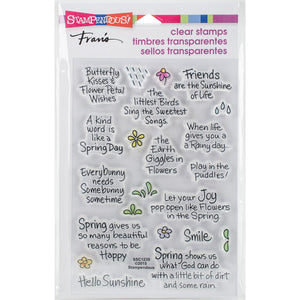 STAMPENDOUS!
Fran's
clear stamps
timbres transparentes
sellos transparentes
Butterfly
Kisses &
Flower Petal
Wishes
The
littlest Birds
Sing the Sweetest
Songs.
Friends
are the Sunshine
of Life
A kind
word is
like a
Spring Day
The
Earth
Giggles in
Flowers
When life
gives you a
a Rainy day...
play in the
puddles!
Everybunny
needs
Somebunny
sometime
Let your Joy
pop open like Flowers
in the Spring.
Spring gives
us so many beautiful
reasons to be
Happy
SSC1239
©2015
Stampendous
Smile
Spring shows us
what God can do
with a little bit of dirt
and some rain.
Hello Sunshine